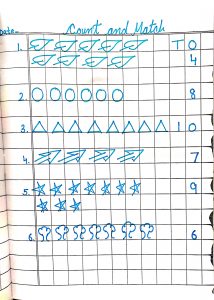 Date- Count and Match
1. T O
4
2. 8
3. 1 0
4. 7
5. 9
6. 6